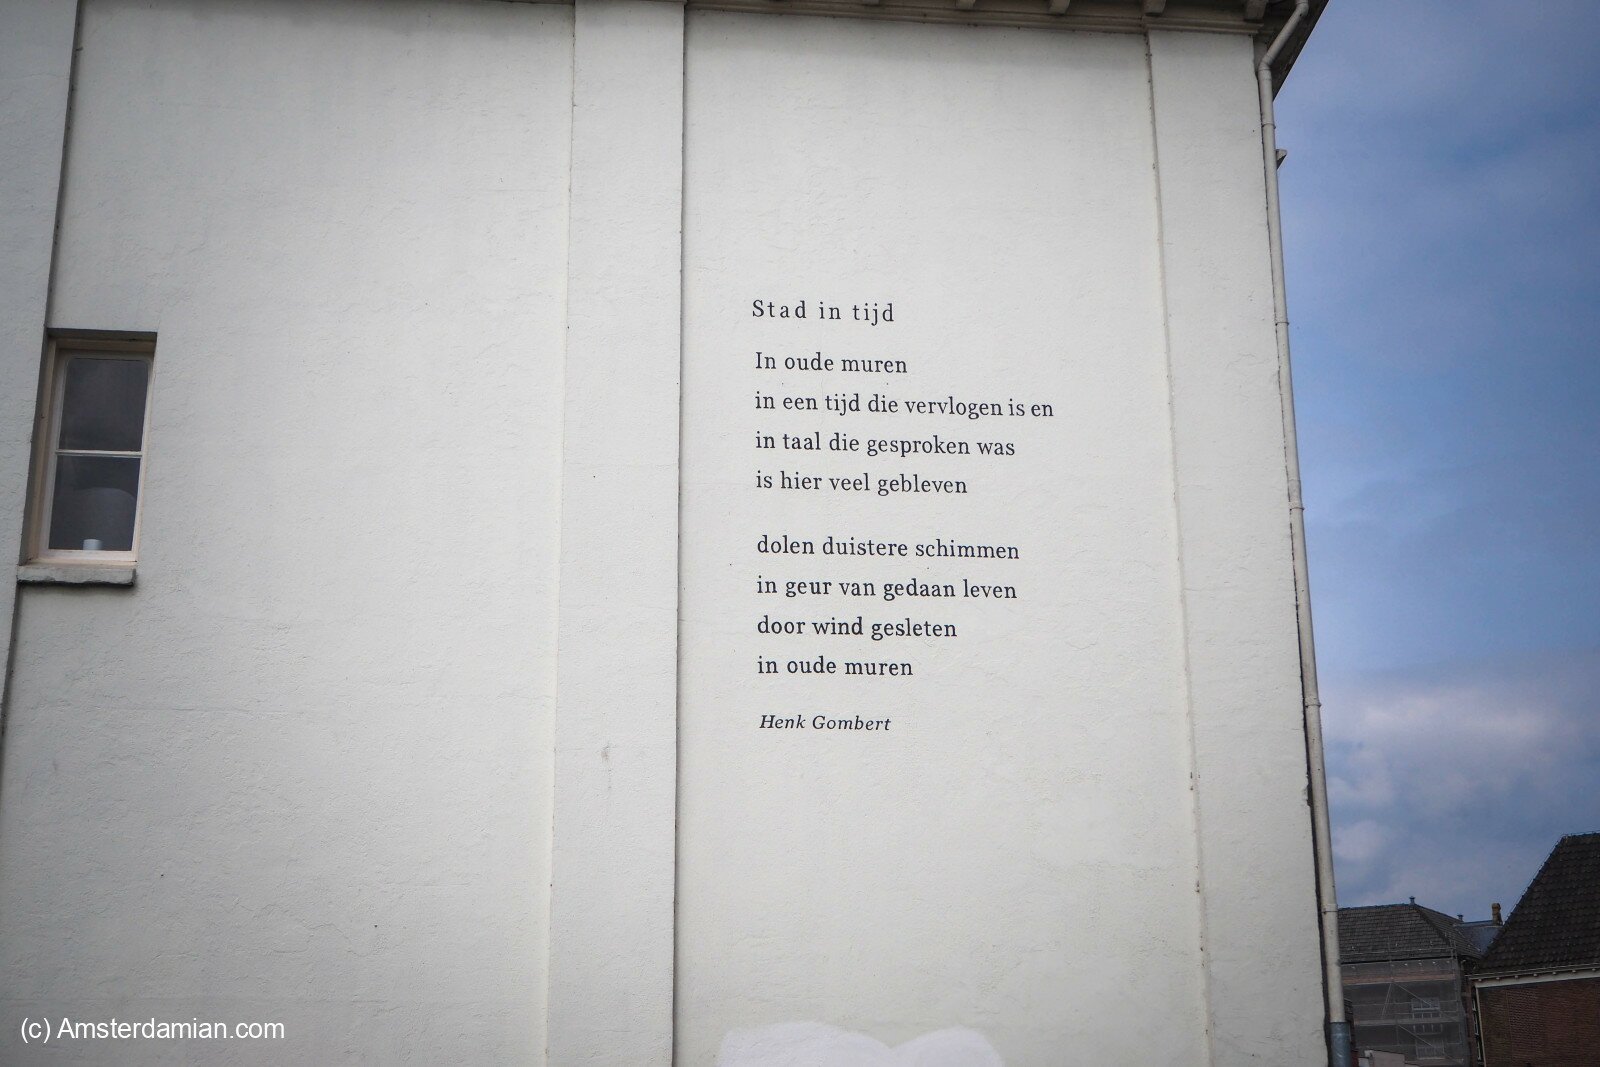 Stad in tijd
In oude muren
in een tijd die vervlogen is en
in taal die gesproken was
is hier veel gebleven
dolen duistere schimmen
in geur van gedaan leven
door wind gesleten
in oude muren
Henk Gombert
(c) Amsterdamian.com